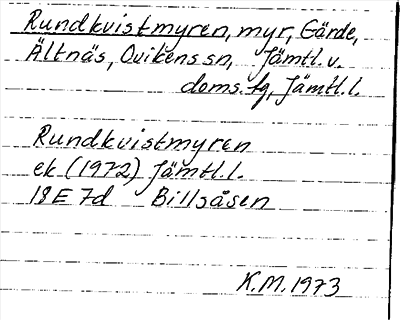 Rundkvistmyren, myr, Gärde,
Ältnäs, Ovikens sn, Jämtl. v.
doms. fg, Jämtl. l.
Rundkvistmyren
ek (1972) Jämtl. l.
18E 7d Billsåsen
K.M. 1973